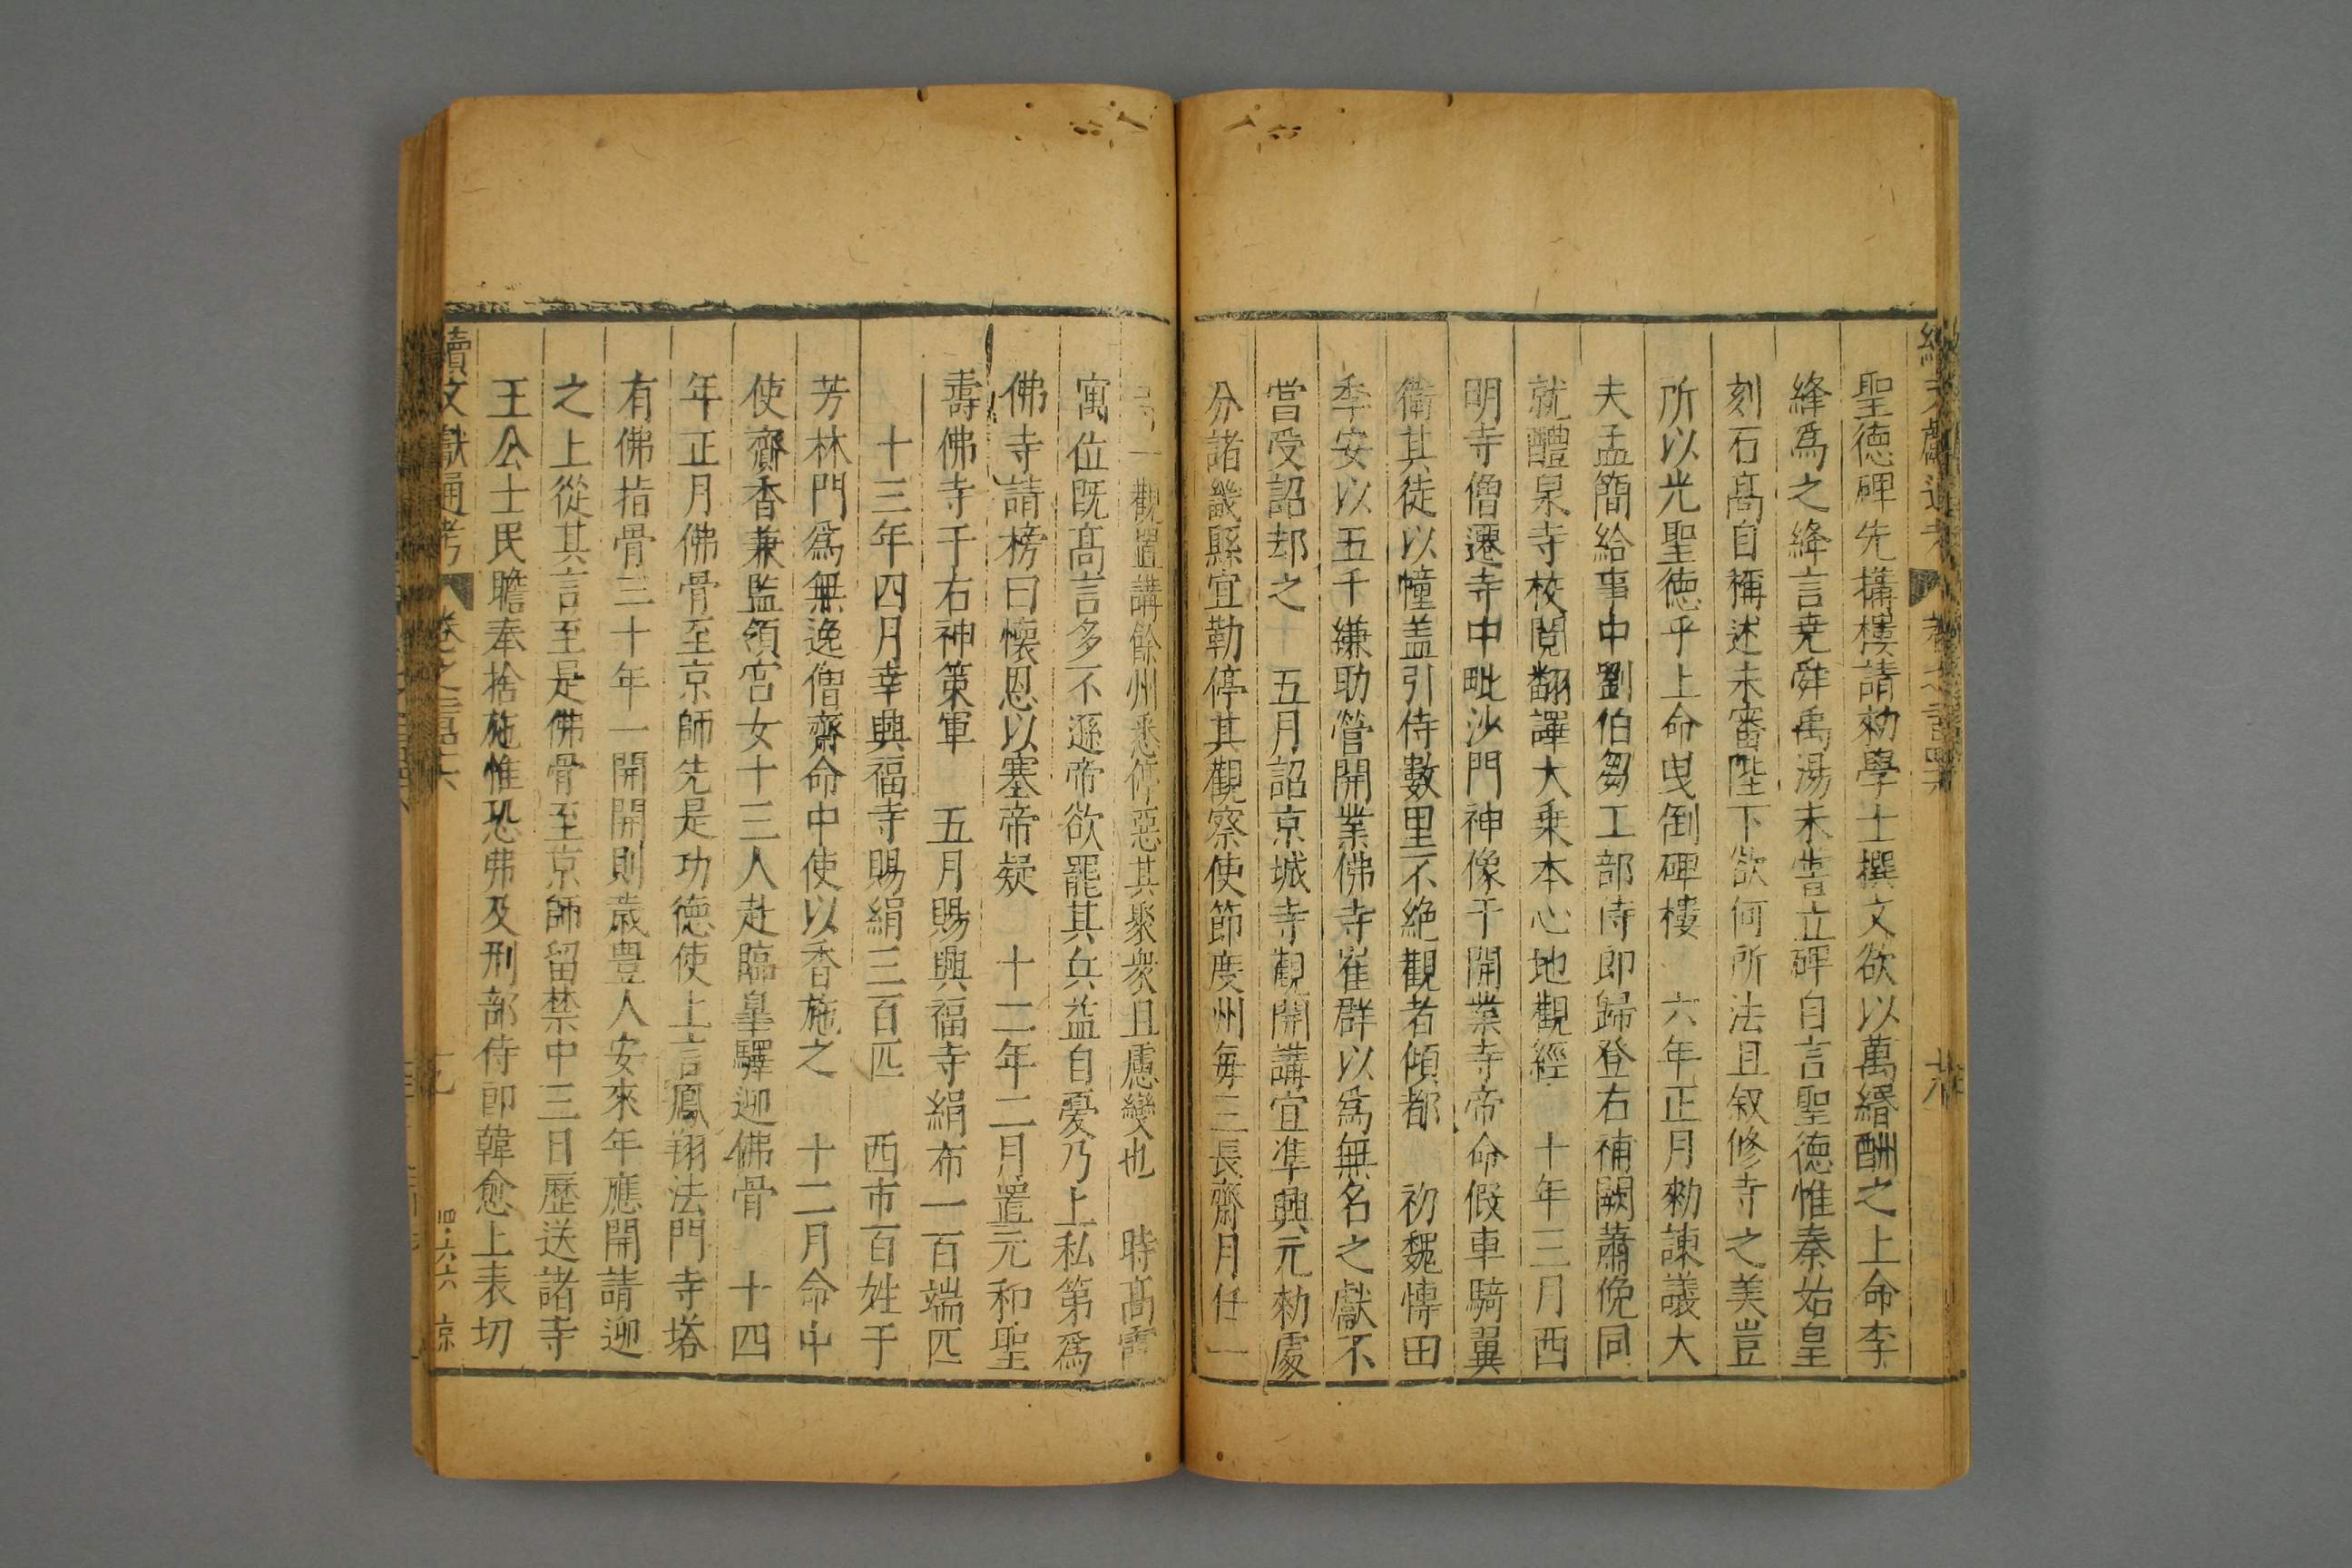 聖德碑先搆樓請勑學士撰文欲以萬緡酬之上命李
絳爲之絳言堯舜禹湯未嘗立碑自言聖德惟秦始皇
刻石高自稱述未審陛下欲何所法且叙修寺之美豈
所以光聖德乎上命曳倒碑樓 六年正月勑諫議大
夫孟簡給事中劉伯芻工部侍郎歸登右補闕蕭俛同
就醴泉寺校閱翻譯大乗本心地觀經 十年三月西
明寺僧遷寺中毗沙門神像于開業寺帝命假車騎翼
衛其徒以幢盖引侍數里不絶觀者傾都 初魏博田
季安以五千縑助營開業佛寺崔群以爲無名之獻不
當受詔却之 五月詔京城寺觀開講宜準興元勑處
分諸畿縣宜勒停其觀察使節度州每三長齋月任一
一觀置講餘州悉停惡其聚衆且慮變也 時髙霞
寓位既髙言多不遜帝欲罷其兵益自憂乃上私第爲
佛寺請榜曰懷恩以塞帝疑 十二年二月置元和聖
壽佛寺于右神策軍 五月賜興福寺絹布一百端匹
十三年四月幸興福寺賜絹三百匹 西市百姓于
芳林門爲無遮僧齋命中使以香施之 十二月命中
使齎香兼監領宮女十三人赴臨皇驛迎佛骨 十四
年正月佛骨至京師先是功德使上言鳳翔法門寺塔
有佛指骨三十年一開開則歳豊人安來年應開請迎
之上從其言至是佛骨至京師留禁中三日歷送諸寺
王公士民瞻奉捨施惟恐弗及刑部侍郎韓愈上表切
續文獻通考 卷之 四六六 京